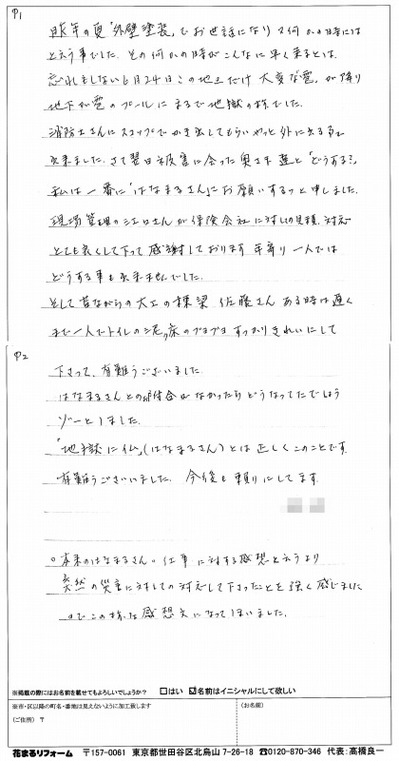 P1
昨年の夏「外壁塗装」でお世話になり又何かの時には
と云う事でした。その何かの時がこんなに早く来るとは。
忘れもしない6月24日この地区だけ大変な雹が降り
地下が雹のプールにまるで地獄の様でした。
消防士さんにスコップでかき出してもらいやっと外に出る事
出来ました。さて翌日被害に会った奥さま達と「どうする?」
私は一番に「はなまるさん」にお願いするっと申しました。
現場管理の江口さんが保険会社に対しての見積、対応
とても良くして下って感謝しております 年寄り一人では
どうする事も出来ませんでした。
そして昔ながらの大工の棟梁 佐藤さん ある時は遅く
まで一人でトイレの泥、床のブヨブヨすっかりきれいにして
P2
下さって、有難うございました。
はなまるさんとの出合がなかったらどうなってたでしょう
ゾーとしました。
「地獄に仏」(はなまるさん)とは正しくこのことです。
有難うございました。今後も頼りにしてます。
○本来のはなまるさんの仕事に対する感想と云うより
突然の災害に対しての対応して下さったことを強く感じました
のでこの様な感想文になってしまいました。
※掲載の際にはお名前を載せてもよろしいでしょうか? □はい ☑名前はイニシャルにして欲しい
※市・区以降の町名・番地は見えないように加工致します
(ご住所) 〒
(お名前)
花まるリフォーム 〒157-0061 東京都世田谷区北烏山7-26-18 ☎0120-870-346 代表:高橋良一